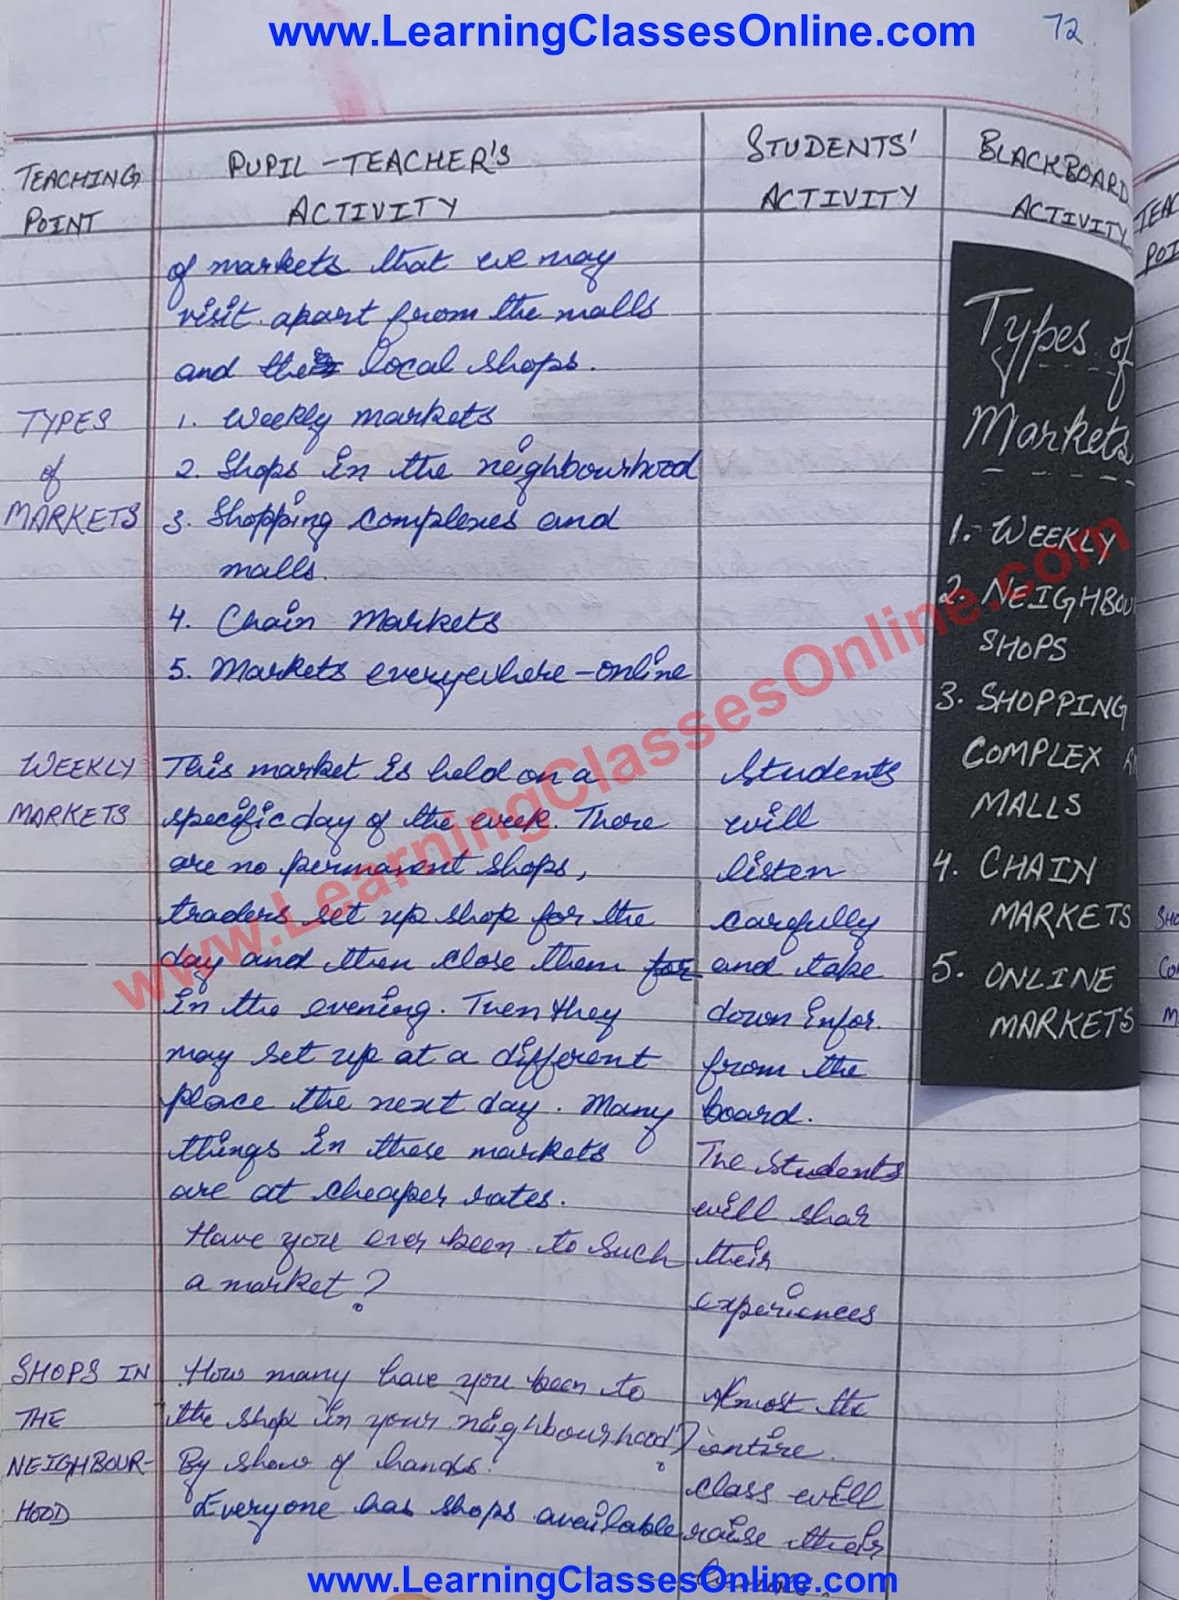 www.LearningClassesOnline.com
72
TEACHING
POINT
PUPIL-TEACHER'S
ACTIVITY
STUDENTS'
ACTIVITY
BLACKBOARD
ACTIVITY
of markets that we may
visit apart from the malls
and the local shops.
TYPES
of
MARKETS
1. Weekly markets
2. Shops in the neighbourhood
3. Shopping complexes and
malls.
4. Chain Markets
5. Markets everywhere-online
WEEKLY
MARKETS
This market is held on a
specific day of the week. There
are no permanent shops,
traders set up shop for the
day and then close them for
in the evening. Then they
may set up at a different
place the next day. Many
things in these markets
are at cheaper rates.
Have you ever been to such
a market?
Students
will
listen
carefully
and take
down infor.
from the
board.
The students
will shar
their
experiences
SHOPS IN
THE
NEIGHBOUR-
HOOD
How many have you been to
the shop in your neighbourhood?
By show of hands.
Everyone has shops available
Almost the
entire
class will
raise their
Types of
Markets
1. WEEKLY
2. NEIGHBOU
SHOPS
3. SHOPPING
COMPLEX A
MALLS
4. CHAIN
MARKETS
5. ONLINE
MARKETS
TEAC
POI
SHO
CO
M
www.LearningClassesOnline.com
www.LearningClassesOnline.com